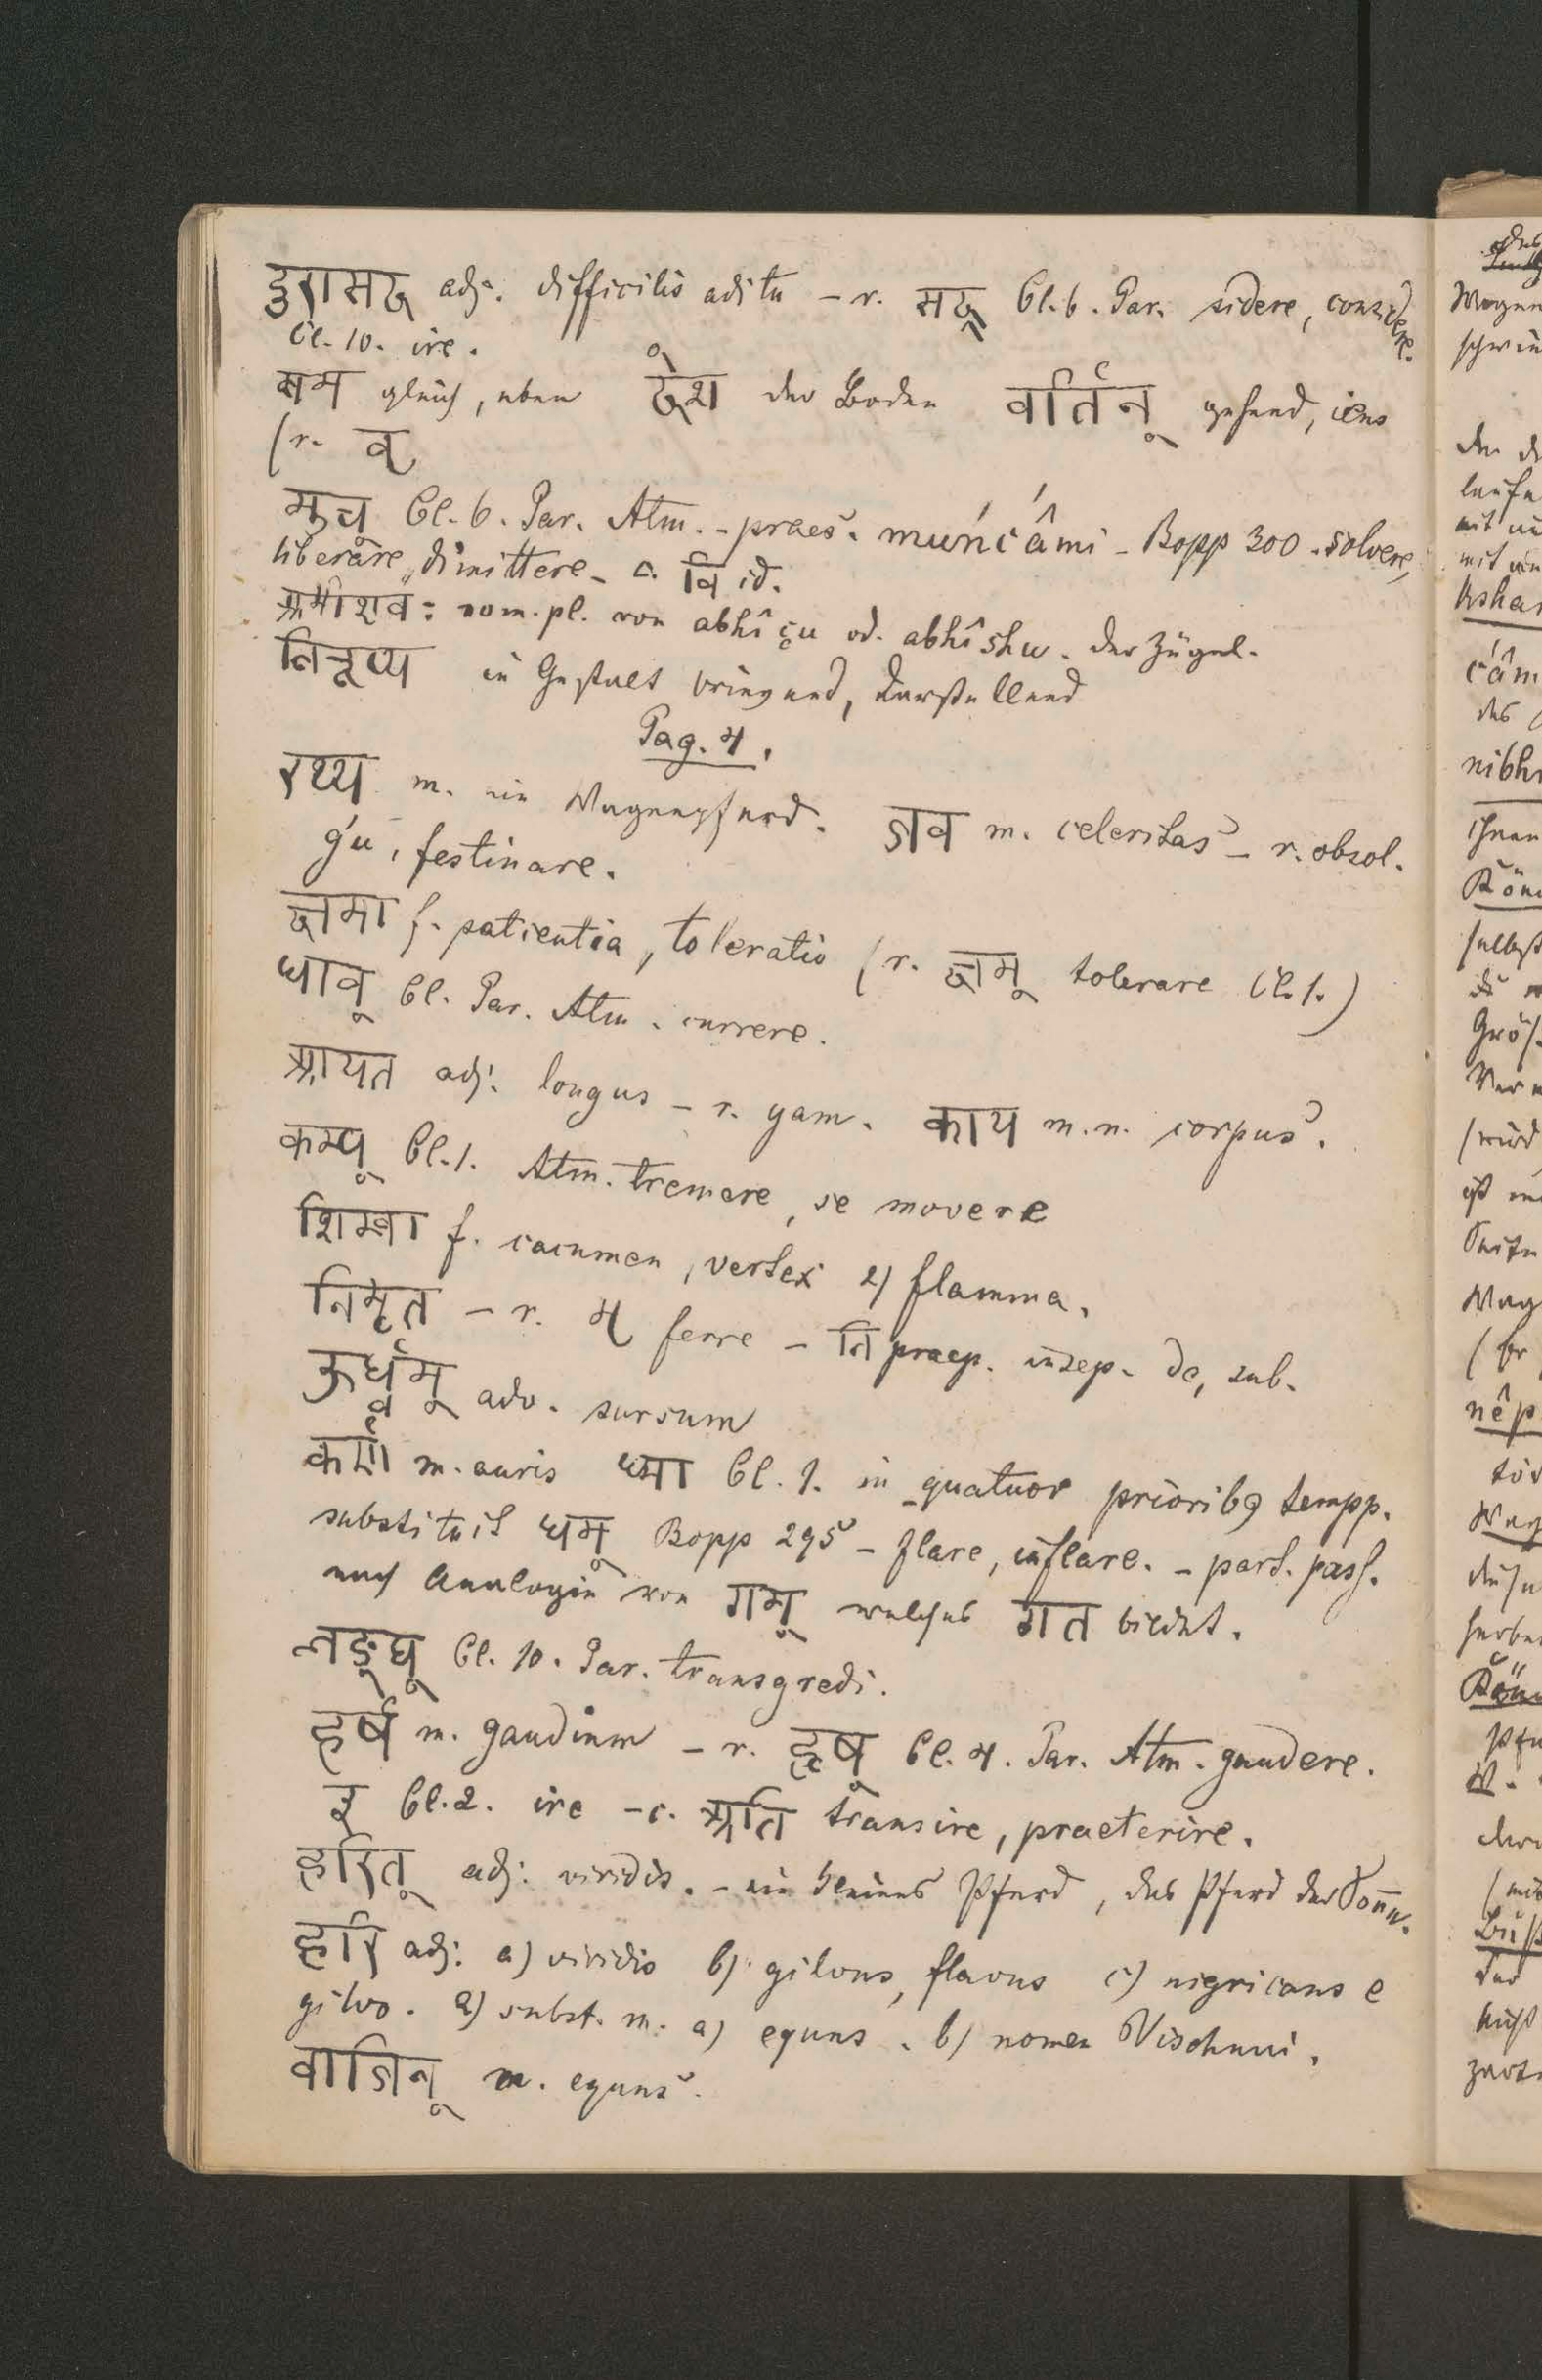 दुरासद adj. difficilis aditu - r. सद् Cl. 6. Par. sidere, considere.
Cl. 10. ire.
सम gleich, eben देश der Boden वर्तिन् gehend, iens
(r. वृ
मुच् Cl. 6. Par. Atm. - praes. muńćâmi - Bopp 300 - solvere,
liberare, dimittere - c. वि id.
अभीशवः nom. pl. von abhîçu od. abhîshu. der Zügel.
निरूप्य in Gestalt bringend, darstellend
Pag. 4.
रथ्य m. ein Wagenpferd. जव m. celeritas - r. obsol.
ǵu, festinare.
क्षमा f. patientia, toleratio (r. क्षम् tolerare Cl. 1.)
धाव् Cl. Par. Atm. currere.
आयत adj. longus - r. yam. काय m. n. corpus.
कम्प् Cl. 1. Atm. tremere, se movere
शिखा f. cacumen, vertex 2) flamma.
निभृत - r. भृ ferre - नि praep. insep. de, sub.
ऊर्ध्वम् adv. sursum
कर्ण m. auris ध्मा Cl. 1. in quatuor priorib9 tempp.
substituit धम् Bopp 295 - flare, inflare. - part. pass.
nach Analogie von गम् welches गत bildet.
लङ्घ् Cl. 10. Par. transgredi.
हर्ष m. gaudium - r. हृष् Cl. 4. Par. Atm. gaudere.
इ Cl. 2. ire - c. अति transire, praeterire.
हरित् adj. viridis. - ein kleines Pferd, das Pferd der Sonne.
हरि adj. a) viridis b) gilvus, flavus c) nigricans e
gilvo. 2) subst. m. a) equus. b) nomen Vischnui.
वाजिन् m. equus.
Wagen
schwin
laufe
mit
mit ein
kshа
ćâm
des
nibhr
ihnen
Köni
selbst
Grös
(wird
Wag
nêp
töd
Weg
Köni